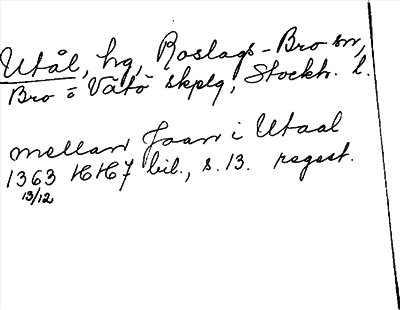 Utål, hg, Roslags-Bro sn,
Bro o Vätö skplg, Stockh. l.
mellan Joan i Utaal
1363 HH7 bil., s. 13. regest.
13/12